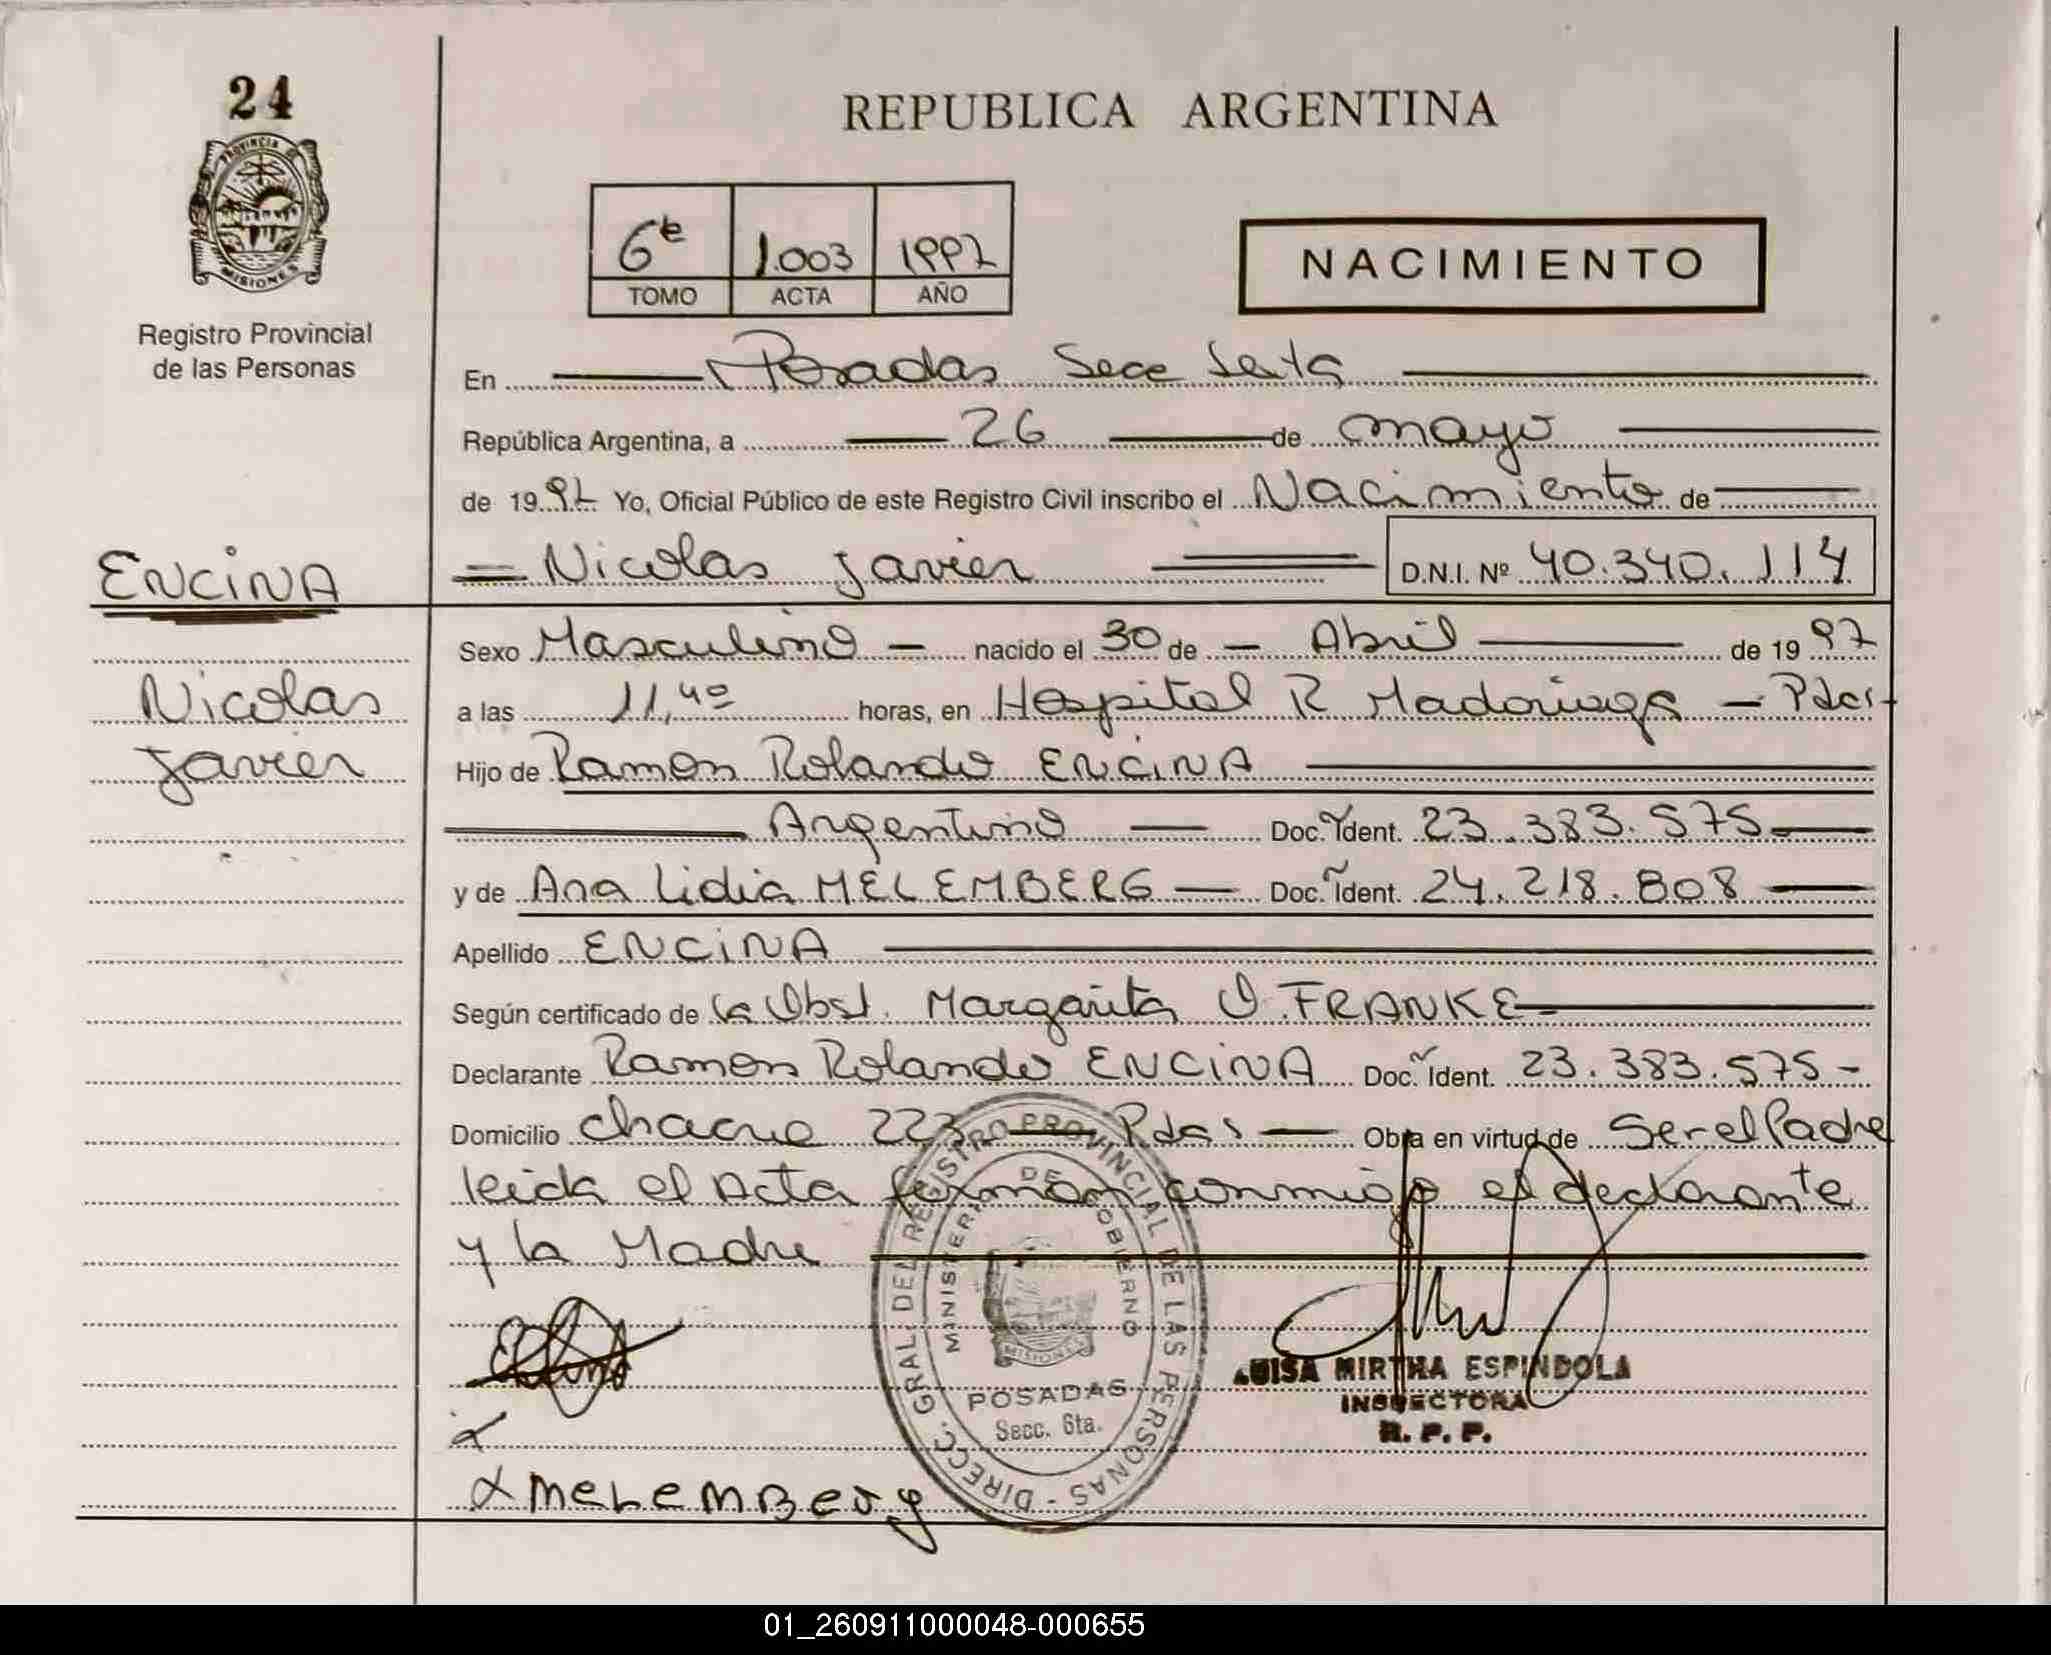 24
PROVINCIA DE
MISIONES
Registro Provincial
de las Personas
REPUBLICA ARGENTINA
6ta 1.003 1997
TOMO ACTA AÑO
NACIMIENTO
En Posadas Secc Sexta
República Argentina, a 26 de mayo
de 1997 Yo, Oficial Público de este Registro Civil inscribo el Nacimiento de
ENCINA
Nicolas Javier D.N.I. Nº 40.340.114
Sexo Masculino nacido el 30 de Abril de 1997
Nicolas
a las 11,40 horas, en Hospital R Madariaga - Pdas
Javier
Hijo de Ramon Rolando ENCINA
Argentino Doc. Ident. 23.383.575
y de Ana Lidia MELEMBERG Doc. Ident. 24.218.808
Apellido ENCINA
Según certificado de la Obst. Margarita O. FRANKE
Declarante Ramon Rolando ENCINA Doc. Ident. 23.383.575
Domicilio chacra 223 Pdas Obra en virtud de Ser el Padre
leida el Acta firman conmigo el declarante
y la Madre
DIRECC. GRAL. DEL REGISTRO PROVINCIAL DE LAS PERSONAS
MINISTERIO DE GOBIERNO
MISIONES
POSADAS
Secc. 6ta.
LUISA MIRTHA ESPINDOLA
INSPECTORA
R. P. P.
MELEMBERG
01_260911000048-000655